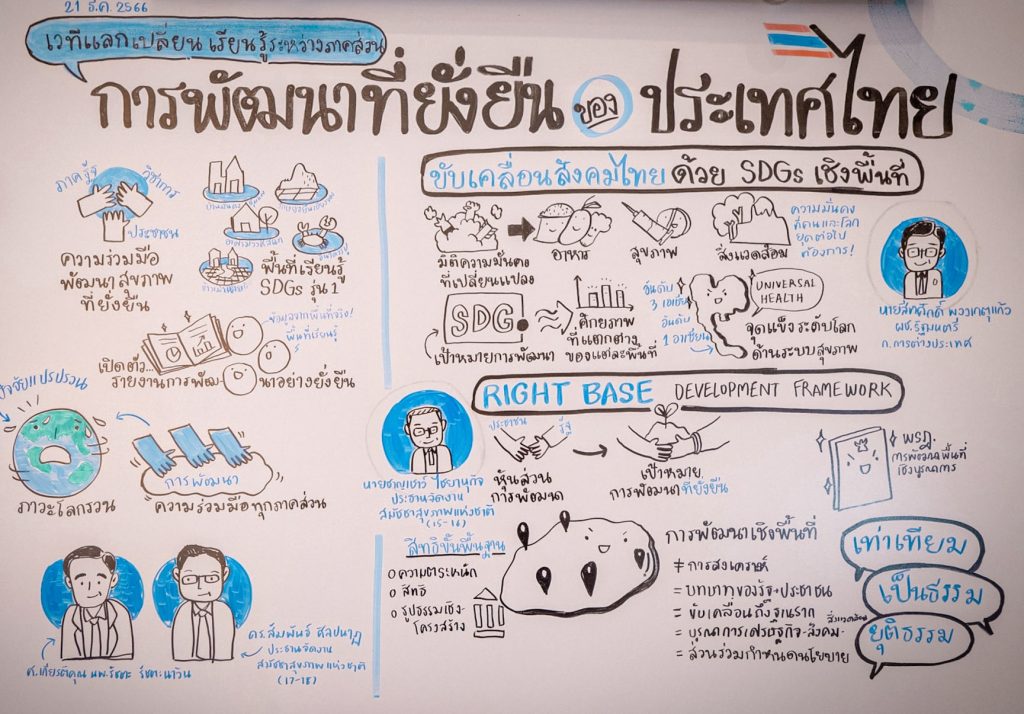 21 ธ.ค. 2566
เวทีแลกเปลี่ยน เรียนรู้ระหว่างภาคส่วน
การพัฒนาที่ยั่งยืน ของ ประเทศไทย
ภาครัฐ
วิชาการ
ประชาชน
ความร่วมมือ
พัฒนาสุขภาพ
ที่ยั่งยืน
พื้นที่เรียนรู้
SDGs รุ่น 1
ข้อมูลจากพื้นที่จริง!
พื้นที่เรียนรู้
เปิดตัว...
รายงานการพัฒนาอย่างยั่งยืน
ปัจจัยแปรปรวน
ภาวะโลกรวน
การพัฒนา
ความร่วมมือทุกภาคส่วน
ศ.เกียรติคุณ นพ.รัชตะ รัชตะนาวิน
ดร.สัมพันธ์ ศิลปนาฎ
ประธานจัดงาน
สมัชชาสุขภาพแห่งชาติ
(17-18)
ขับเคลื่อนสังคมไทย ด้วย SDGs เชิงพื้นที่
มิติความมั่นคง
ที่เปลี่ยนแปลง
อาหาร
สุขภาพ
สิ่งแวดล้อม
ความมั่นคง
ที่คนและโลก
ต้องการ!
SDG
เป้าหมายการพัฒนา
ศักยภาพ
ที่แตกต่าง
ของแต่ละพื้นที่
อันดับ
3 เอเชีย
อันดับ
1 อาเซียน
UNIVERSAL
HEALTH
จุดแข็งระดับโลก
ด้านระบบสุขภาพ
นายสีหศักดิ์ พวงเกตุแก้ว
ผช.รัฐมนตรี
ก.การต่างประเทศ
RIGHT BASE DEVELOPMENT FRAMEWORK
นายชาญเชาวน์ ไชยานุกิจ
ประธานจัดงาน
สมัชชาสุขภาพแห่งชาติ
(15-16)
ประชาชน
รัฐ
หุ้นส่วน
การพัฒนา
เป้าหมาย
การพัฒนาที่ยั่งยืน
พรฎ.
การพัฒนาพื้นที่
เชิงบูรณาการ
สิทธิขั้นพื้นฐาน
ความตระหนัก
สิทธิ
รูปธรรมเชิง-
โครงสร้าง
การพัฒนาเชิงพื้นที่
≠ การสงเคราะห์
= บทบาทของรัฐ+ประชาชน
= ขับเคลื่อนถึงฐานราก
= บูรณาการเศรษฐกิจ-สังคม-สิ่งแวดล้อม
= ส่วนร่วมกำหนดนโยบาย
เท่าเทียม
เป็นธรรม
ยุติธรรม